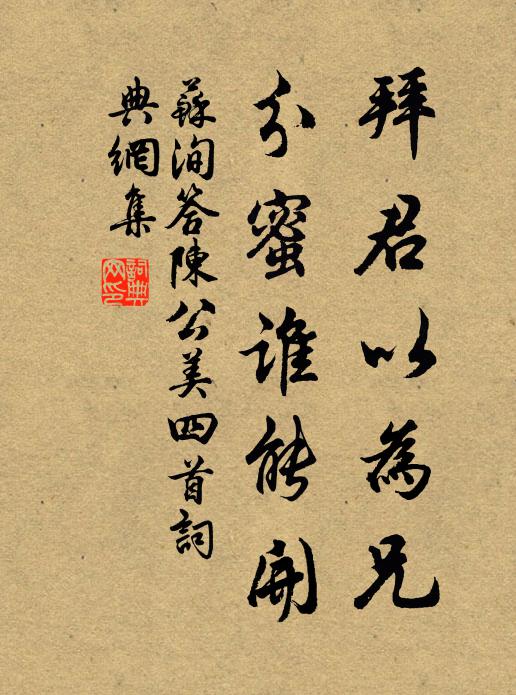 拜君以為兄
分蜜誰能開
蘇洵答陳公美四首詞
典網集
詞典網印